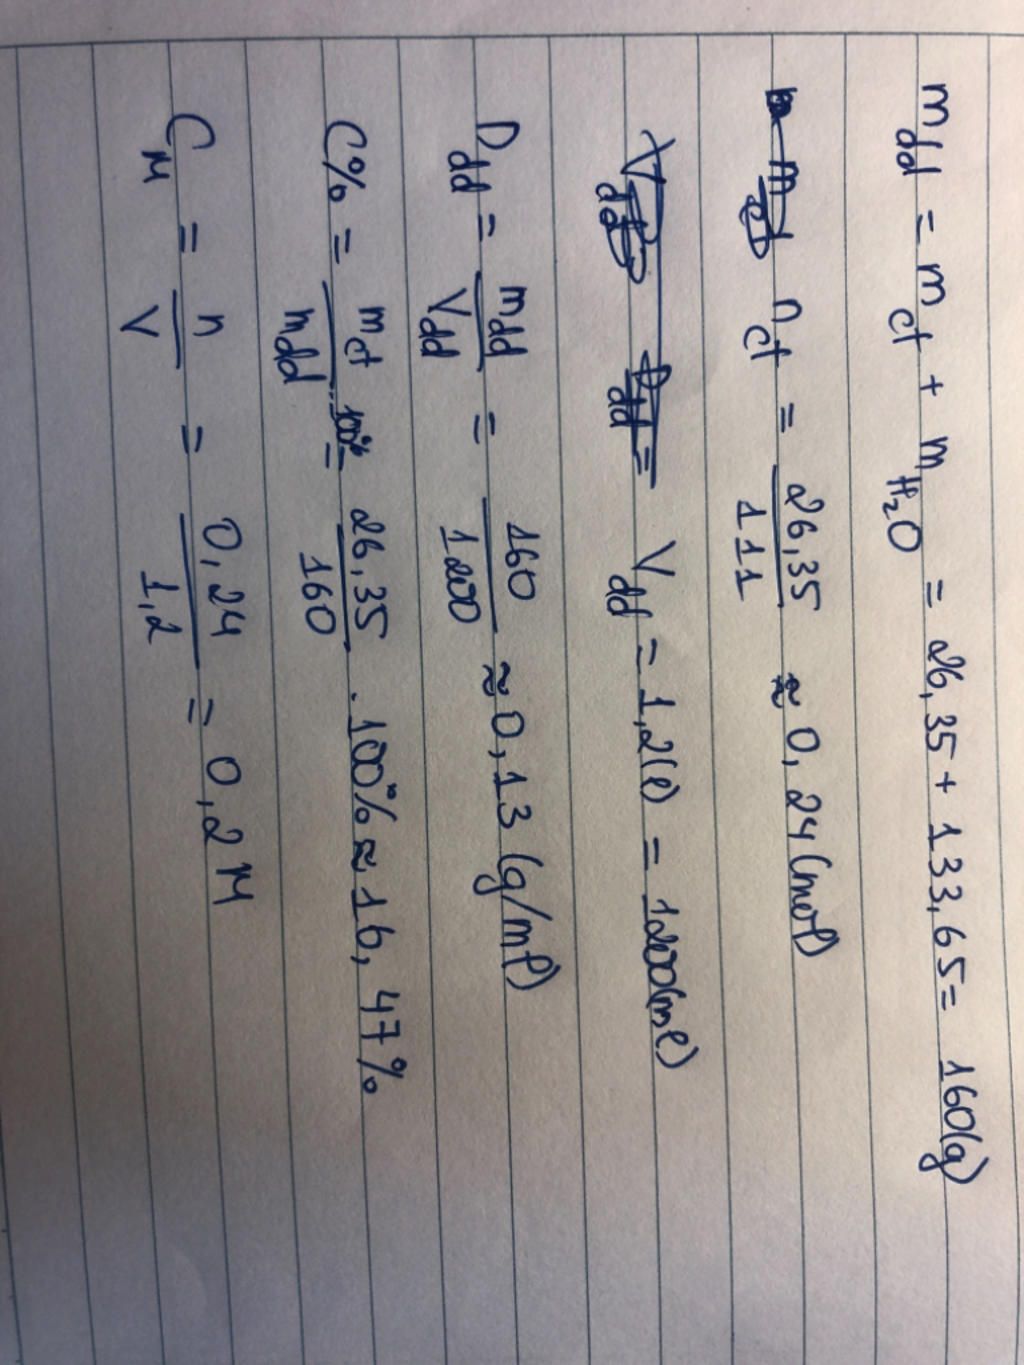 m_dd = m_ct + m_H₂O = 26,35 + 133,65 = 160(g)
n_ct = 26,35/111 ≈ 0,24 (mol)
V_dd = 1,2(l) = 1200(ml)
D_dd = m_dd/V_dd = 160/1200 ≈ 0,13 (g/ml)
C% = m_ct/m_dd . 100% = 26,35/160 . 100% ≈ 16,47%
C_M = n/V = 0,24/1,2 = 0,2 M